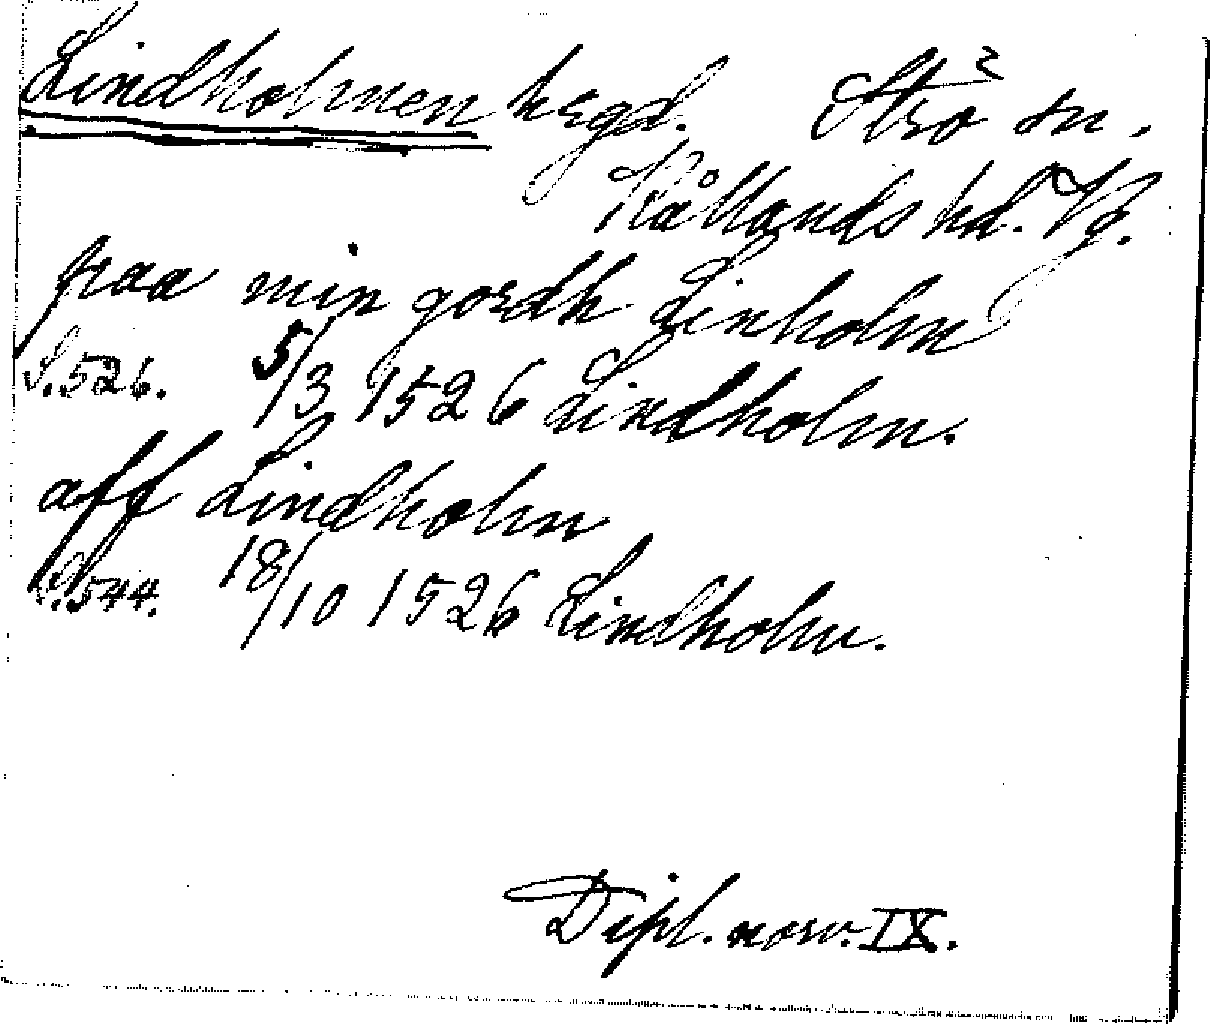 Lindholmen hrgd. Strö sn.
Kållands hd. Vg.
fraa min gordh Linholm
S.526. 5/3 1526 Lindholm.
aff Lindholm
S.544. 18/10 1526 Lindholm.
Dipl. norv. IX.